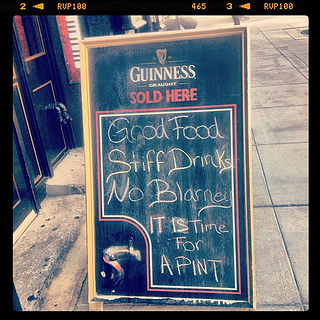 2 ◄ RVP100 465 3 ◄ RVP100
GUINNESS
DRAUGHT
SOLD HERE
Good Food
Stiff Drinks
No Blarney
IT IS Time
For
A PINT